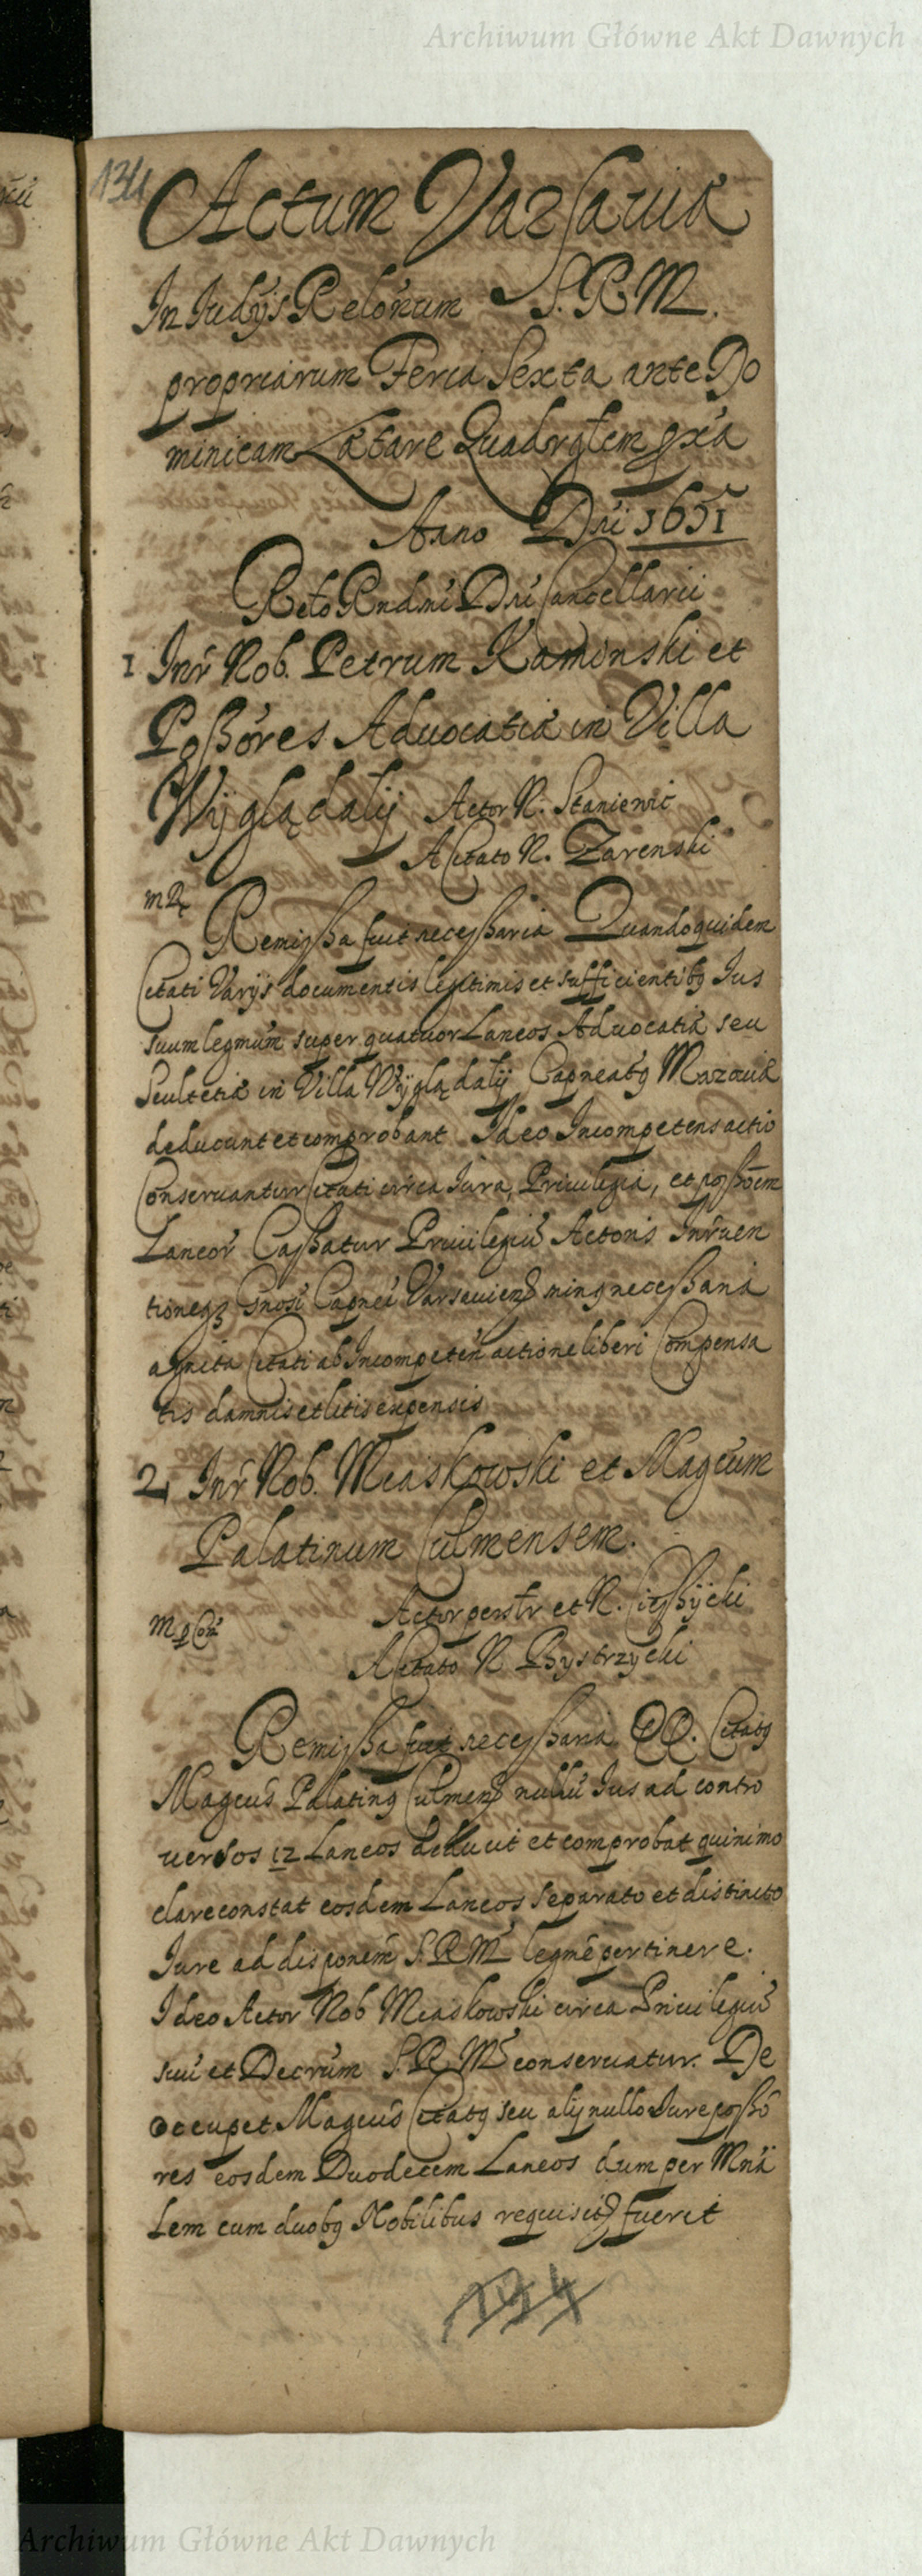 Archiwum Główne Akt Dawnych
134
Actum Varsaviæ
In Iudijs Relōnum S. R. M.
propriarum Feria Sexta ante Do
minicam Lætare Quadrglem pxa
Anno Dni 1651
Relo Rndmi Dni Cancellarii
1 Inr Nob. Petrum Kaminski et
Poßores Aduocatiæ in Villa
Wÿglądalÿ Actor N. Staniewic
A Citato N. Zarenski
Remißa fuit neceßaria Quandoquidem
Citati Varijs documentis legitimis et sufficientibq Ius
suum legmum super quatuor Laneos Aduocatiæ seu
Scultetiæ in Villa Wÿglądalÿ Capneatq Mazouiæ
deducunt et comprobant Ideo Incompetens actio
Conseruantur Citati circa Iura, Priuilegia, et poßoem
Laneor Caßatur Priuilegiū Actoris Inruen
tioneqz Gnosi Capnei Varsauien ninq neceßaria
agnita Citati ab Incompeten actione liberi Compensa
tis damnis et litis expensis
2 Inr Nob. Miaskowski et Magcum
Palatinum Culmensem.
Actor perstr et N. Cießÿcki
A Citato N Bystrzycki
Remißa fuit neceßaria QQ. Citatq
Magcus Palatinq Culmens nullū Ius ad contro
uersos 12 Laneos deducit et comprobat quinimo
clare constat eosdem Laneos separato et distincto
Iure ad disponem S. R. M. legme pertinere.
Ideo Actor Nob Miaskowski circa Priuilegiū
suū et Decrum S. R. Mtis conseruatur. De
occupet Magcus Citatq seu alij nullo Iure poßo
res eosdem Duodecem Laneos dum per Mnia
lem cum duobq Nobilibus requisit fuerit
194
Archiwum Główne Akt Dawnych